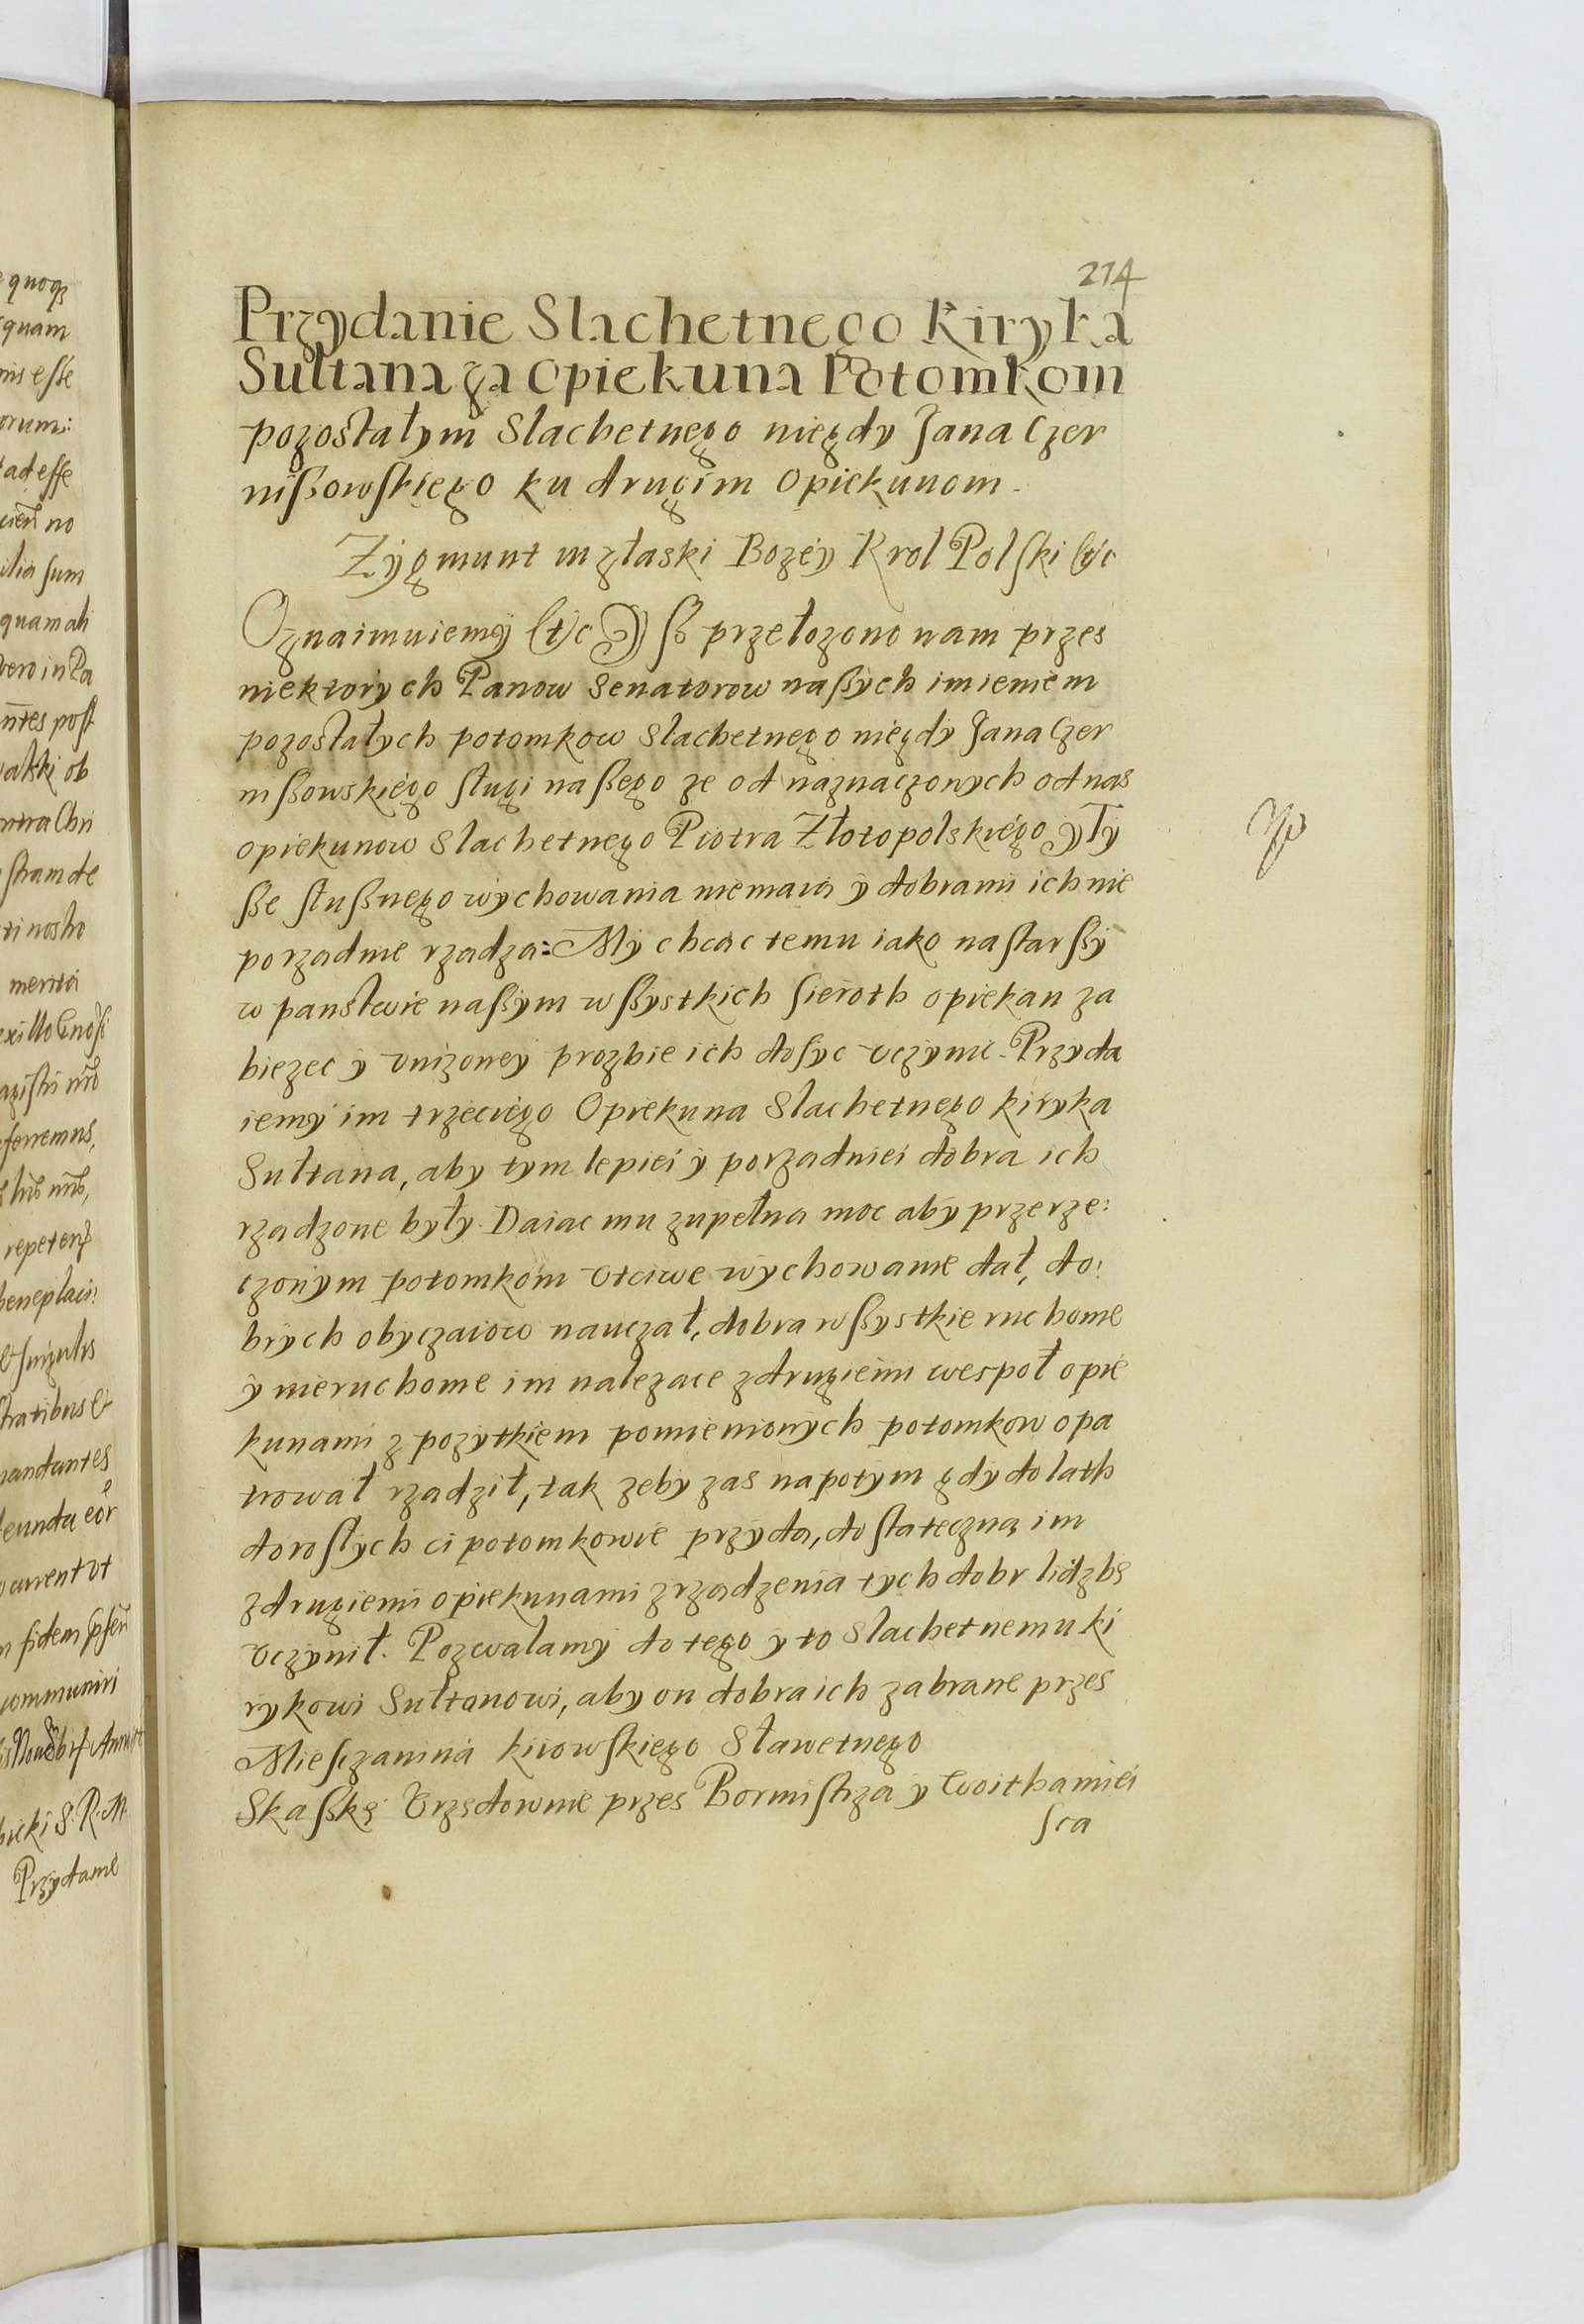 e quoqȝ
quam
nis esse
orum:
ad esse
no
ilia sum
quam ali
vero in Pa
post
ob
ntra Chri
stram de
ti nostro
merita
ferremus,
repetenȝ
beneplaci:
& singulis
tratibus &
mandantes
current vt
fidem
communiri
Przydanie
214
Przydanie Slachetnego Kiryka
Sultana za Opiekuna Potomkom
pozostałym Slachetnego niegdy Jana Czer
nissowskiego ku drugim Opiekunom.
Zygmunt III z łaski Bozey Krol Polski &c
Oznaimuiemy &c Jß przełozono nam przes
niektorych Panow Senatorow naßych imieniem
pozostałych potomkow Slachetnego niegdy Jana Czer
nißowskiego sługi naßego ze od naznaczonych od nas
opiekunow Slachetnego Piotra Złotopolskiego y Ły
ße słußnego wychowania niemaią y dobrami ich nie
porzadnie rzadza: My chcąc temu iako nastarßy
w panstwie naßym wßystkich sieroth opiekan za
biezec y vnizoney prozbie ich dosyc vczynic. Przyda
iemy im trzeciego Opiekuna Slachetnego kiryka
Sułtana, aby tym lepiei y porzadniei dobra ich
rzadzone były. Daiac mu zupełna moc aby przerze:
czonym potomkom vtciwe wychowanie dał, do:
brych obyczaiow nauczał, dobra wßystkie ruchome
y nieruchome im nalezace z drugiemi wespoł opie
kunami z pozytkiem pomienionych potomkow opa
trował rzadził, tak zeby zas napotym gdy do lath
dorosłych ci potomkowie przyda, dostateczną im
z drugiemi opiekunami z rzadzenia tych dobr lidzbę
vczynił. Pozwalamy do tego y to Slachetnemu ki
rykowi Sułtanowi, aby on dobra ich zabrane przes
Miesczanina kiiowskiego Sławetnego
Skaßkę Vrzędownie przes Bormistrza y Woitha miei
sca